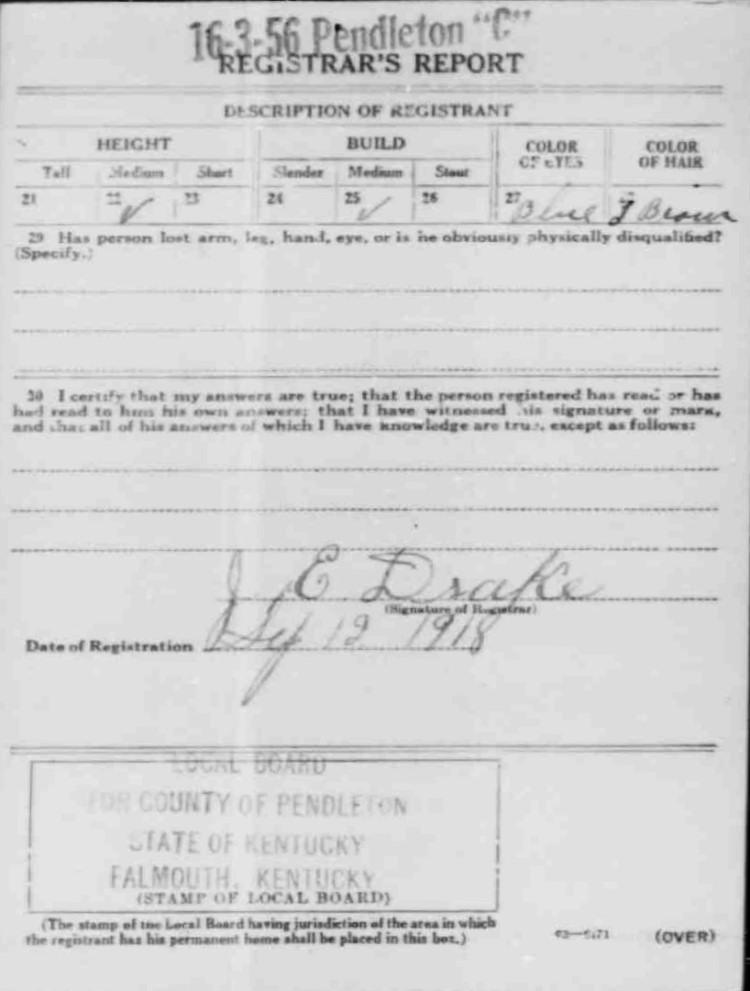 16-3-56 Pendleton "C"
REGISTRAR'S REPORT
DESCRIPTION OF REGISTRANT
HEIGHT BUILD COLOR OF EYES COLOR OF HAIR
Tall Medium Short Slender Medium Stout
21 22 ✓ 23 24 25 ✓ 26 27 Blue Brown
29 Has person lost arm, leg, hand, eye, or is he obviously physically disqualified?
(Specify.)
30 I certify that my answers are true; that the person registered has read or has
had read to him his own answers; that I have witnessed his signature or mark,
and that all of his answers of which I have knowledge are true, except as follows:
J E Drake
(Signature of Registrar)
Date of Registration Sep 12 1918
LOCAL BOARD
FOR COUNTY OF PENDLETON
STATE OF KENTUCKY
FALMOUTH, KENTUCKY
(STAMP OF LOCAL BOARD)
(The stamp of the Local Board having jurisdiction of the area in which
the registrant has his permanent home shall be placed in this box.)
(OVER)